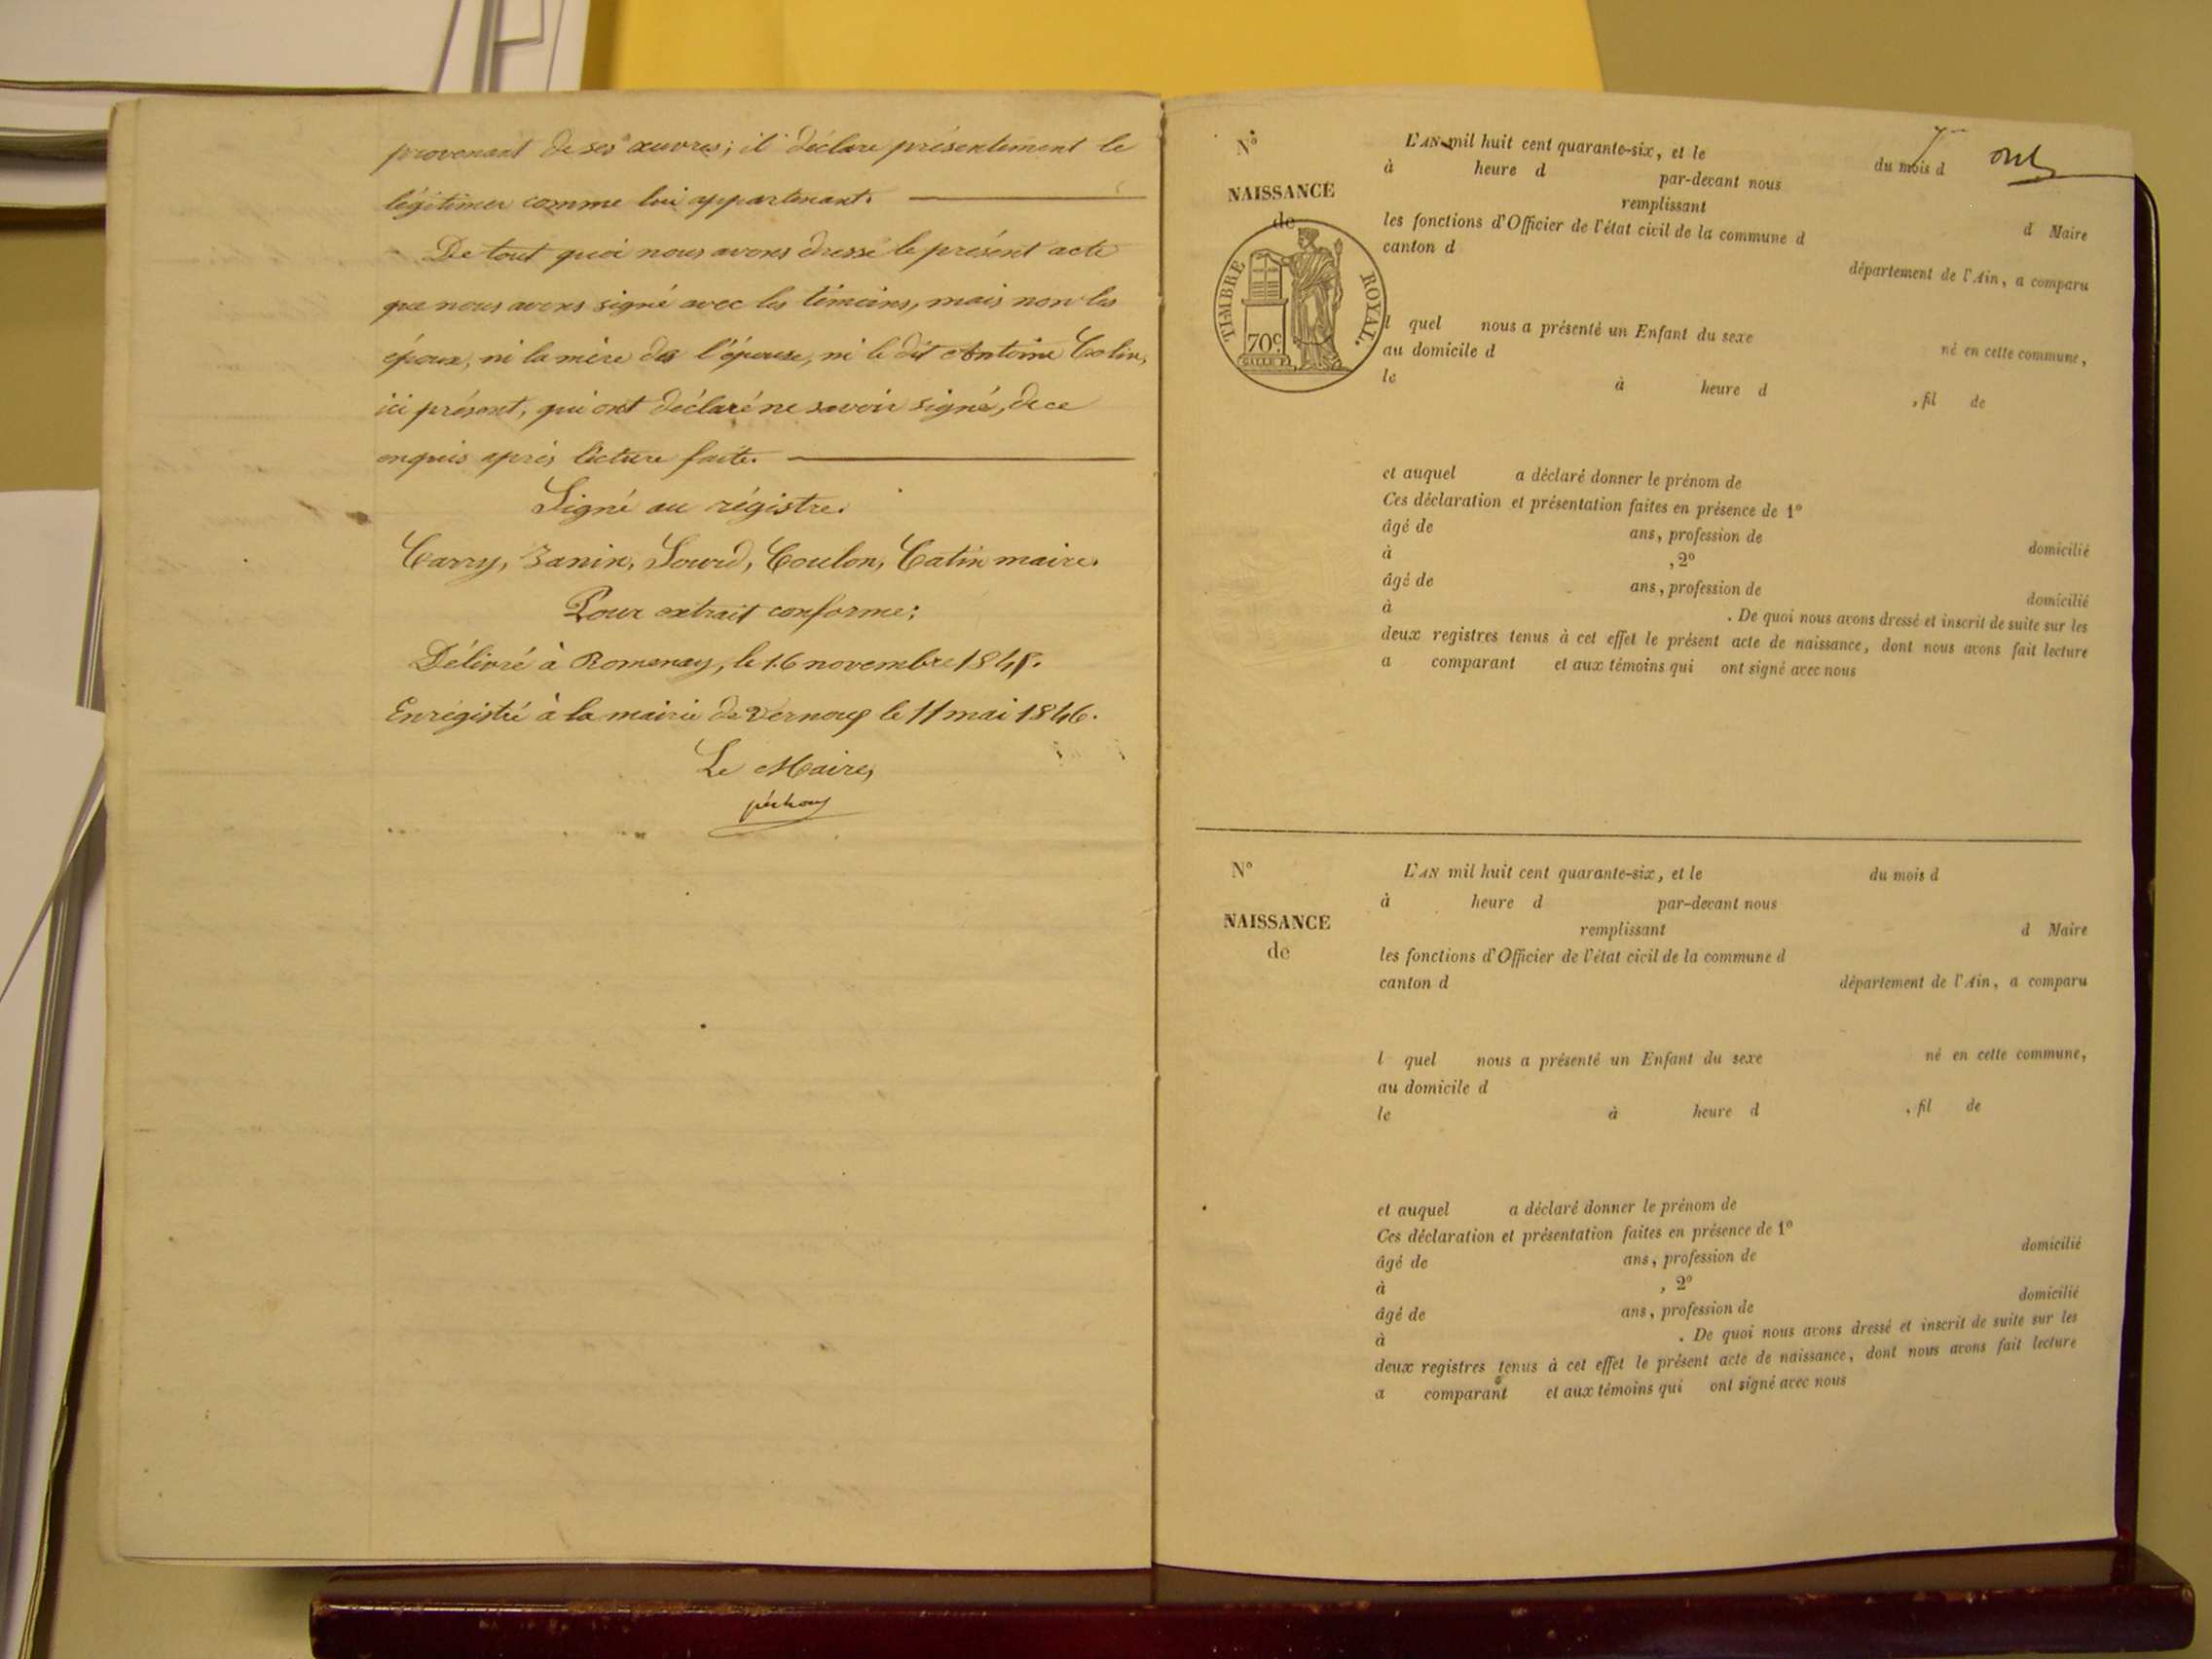 provenant de ses œuvres; il déclare présentement le
légitimer comme lui appartenant.
De tout quoi nous avons dressé le présent acte
que nous avons signé avec les témoins, mais non les
époux, ni la mère de l'épouse, ni le dit Antoine Catin,
ici présent, qui ont déclaré ne savoir signé, de ce
enquis après lecture faite.
Signé au régistre.
Carry, Janin, Sourd, Coulon, Catin maire.
Pour extrait conforme:
Délivré à Romenay, le 16 novembre
Enrégistré à la mairie de Vernoux le 11 mai 1846.
Le Maire,
N°
NAISSANCE
de
TIMBRE ROYAL.
70c
L'AN mil huit cent quarante-six, et le du mois d
à heure d par-devant nous
remplissant d Maire
les fonctions d'Officier de l'état civil de la commune d
canton d département de l'Ain, a comparu
l quel nous a présenté un Enfant du sexe né en cette commune,
au domicile d
le à heure d , fil de
et auquel a déclaré donner le prénom de
Ces déclaration et présentation faites en présence de 1°
âgé de ans, profession de domicilié
à , 2°
âgé de ans, profession de domicilié
à . De quoi nous avons dressé et inscrit de suite sur les
deux registres tenus à cet effet le présent acte de naissance, dont nous avons fait lecture
a comparant et aux témoins qui ont signé avec nous
N°
NAISSANCE
de
L'AN mil huit cent quarante-six, et le du mois d
à heure d par-devant nous
remplissant d Maire
les fonctions d'Officier de l'état civil de la commune d
canton d département de l'Ain, a comparu
l quel nous a présenté un Enfant du sexe né en cette commune,
au domicile d
le à heure d , fil de
et auquel a déclaré donner le prénom de
Ces déclaration et présentation faites en présence de 1°
âgé de ans, profession de domicilié
à , 2°
âgé de ans, profession de domicilié
à . De quoi nous avons dressé et inscrit de suite sur les
deux registres tenus à cet effet le présent acte de naissance, dont nous avons fait lecture
a comparant et aux témoins qui ont signé avec nous